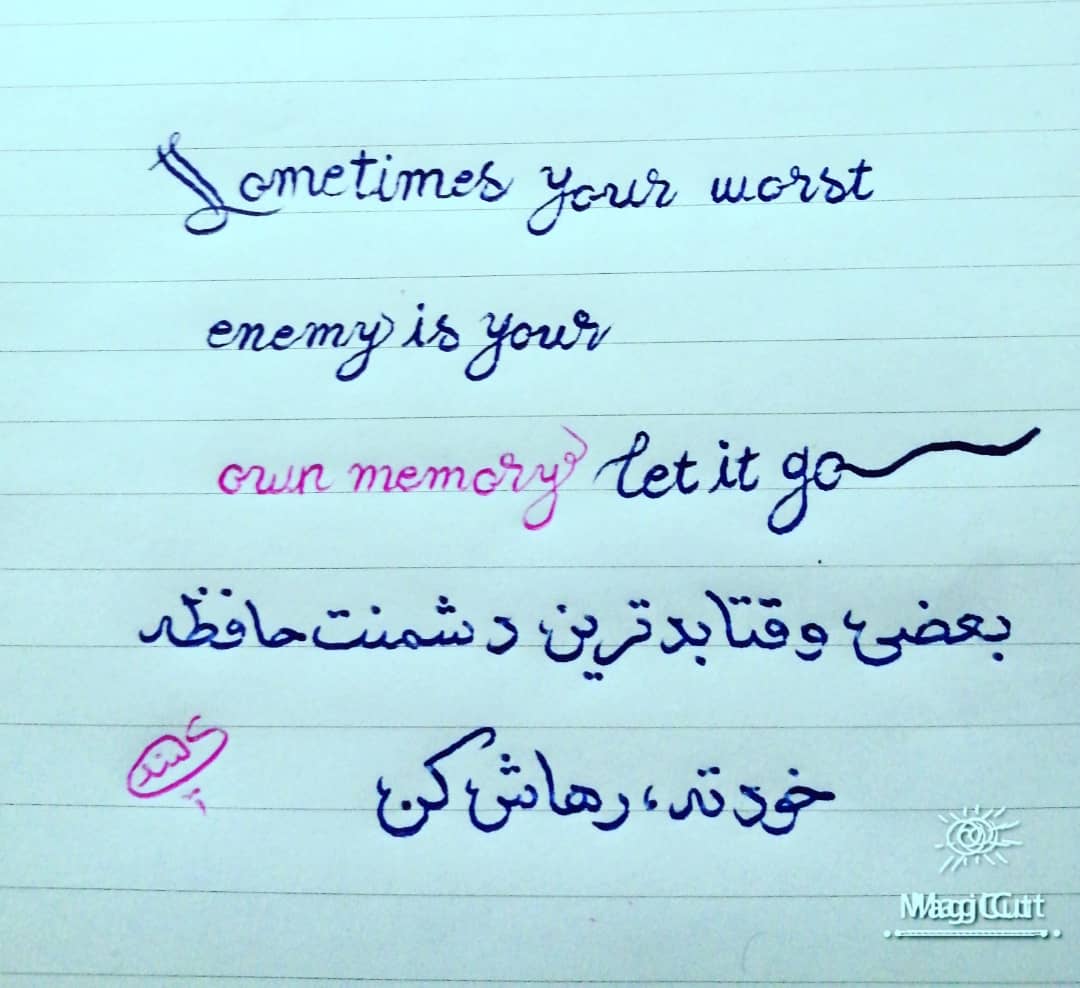 Sometimes your worst
enemy is your
own memory let it go
بعضی وقتا بدترین دشمنت حافظه
خودته، رهاش کن
MagiCut